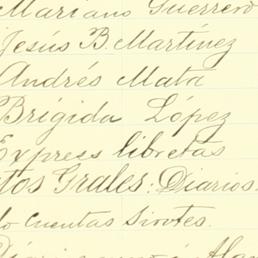 Mariano Guerrero
Jesús B. Martínez
Andrés Mata
Brígida López
Express libretas
tos Grales: Diarios.
Cuentas Sirotes.